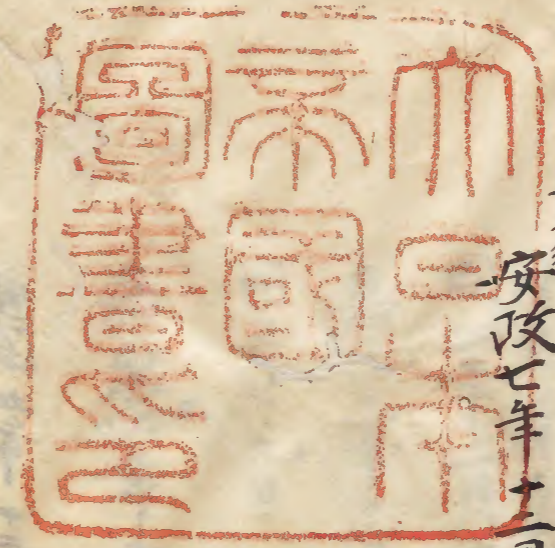 大日本
帝國
圖書印
安政七年